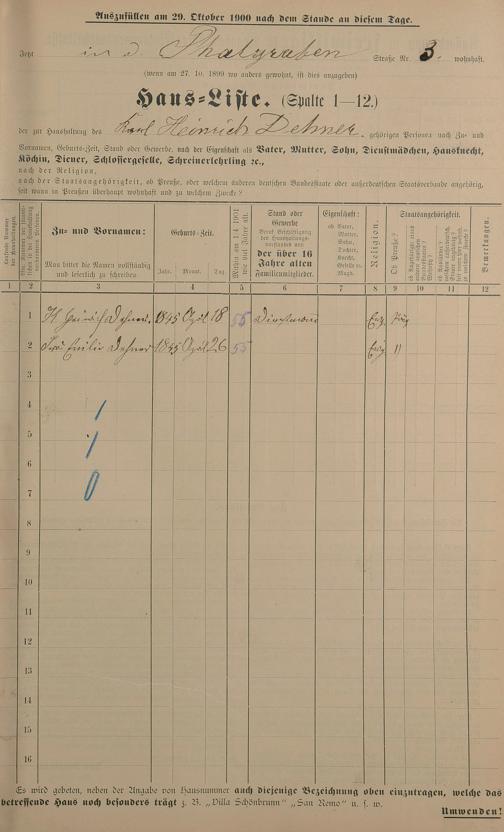 Auszufüllen am 29. Oktober 1900 nach dem Stande an diesem Tage.
Jetzt in d. Thalgraben Straße Nr. 3. wohnhaft.
(wenn am 27. 10. 1899 wo anders gewohnt, ist dies anzugeben)
Haus-Liste. (Spalte 1—12.)
der zur Haushaltung des Karl Heinrich Dehner gehörigen Personen nach Zu- und
Vornamen, Geburts-Zeit, Stand oder Gewerbe, nach der Eigenschaft als Vater, Mutter, Sohn, Dienstmädchen, Hausknecht,
Köchin, Diener, Schlossergeselle, Schreinerlehrling ꝛc.,
nach der Religion,
nach der Staatsangehörigkeit, ob Preuße, oder welchem anderen deutschen Bundesstaate oder außerdeutschen Staatsverbande angehörig,
seit wann in Preußen überhaupt wohnhaft und zu welchem Zwecke?
Zu- und Vornamen:
Man bittet die Namen vollständig
und leserlich zu schreiben
Geburts-Zeit.
Jahr. Monat. Tag.
Stand oder
Gewerbe
der über 16
Jahre alten
Familienmitglieder.
Eigenschaft:
ob Vater,
Mutter,
Sohn,
Tochter,
Knecht,
Geselle ꝛc.
Magd.
Religion.
Ob Preuße?
Staatsangehörigkeit.
Bemerkungen.
1 2 3 4 5 6 7 8 9 10 11 12
1 K Heinrich Dehner. 1845 April 18 55 Dienstmann Evg.
2 Emilie Dehner 1845 April 26 55 Evg "
3
4
5
6
7
8
9
10
11
12
13
14
15
16
Es wird gebeten, neben der Angabe von Hausnummer auch diejenige Bezeichnung oben einzutragen, welche das
betreffende Haus noch besonders trägt z. B. „Villa Schönbrunn" „San Remo" u. s. w.
Umwenden!